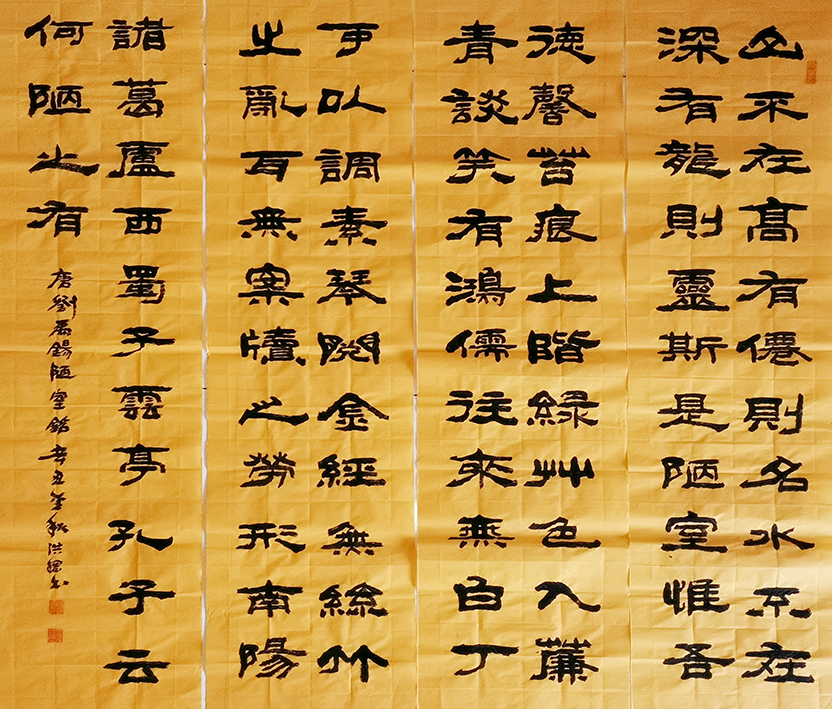 山不在高有僊則名水不在
深有龍則靈斯是陋室惟吾
徳馨苔痕上階緑艸色入簾
青談笑有鴻儒往來無白丁
可以調素琴閱金經無絲竹
之亂耳無案牘之勞形南陽
諸葛廬西蜀子雲亭孔子云
何陋之有
唐劉禹錫陋室銘辛丑金秋洪書